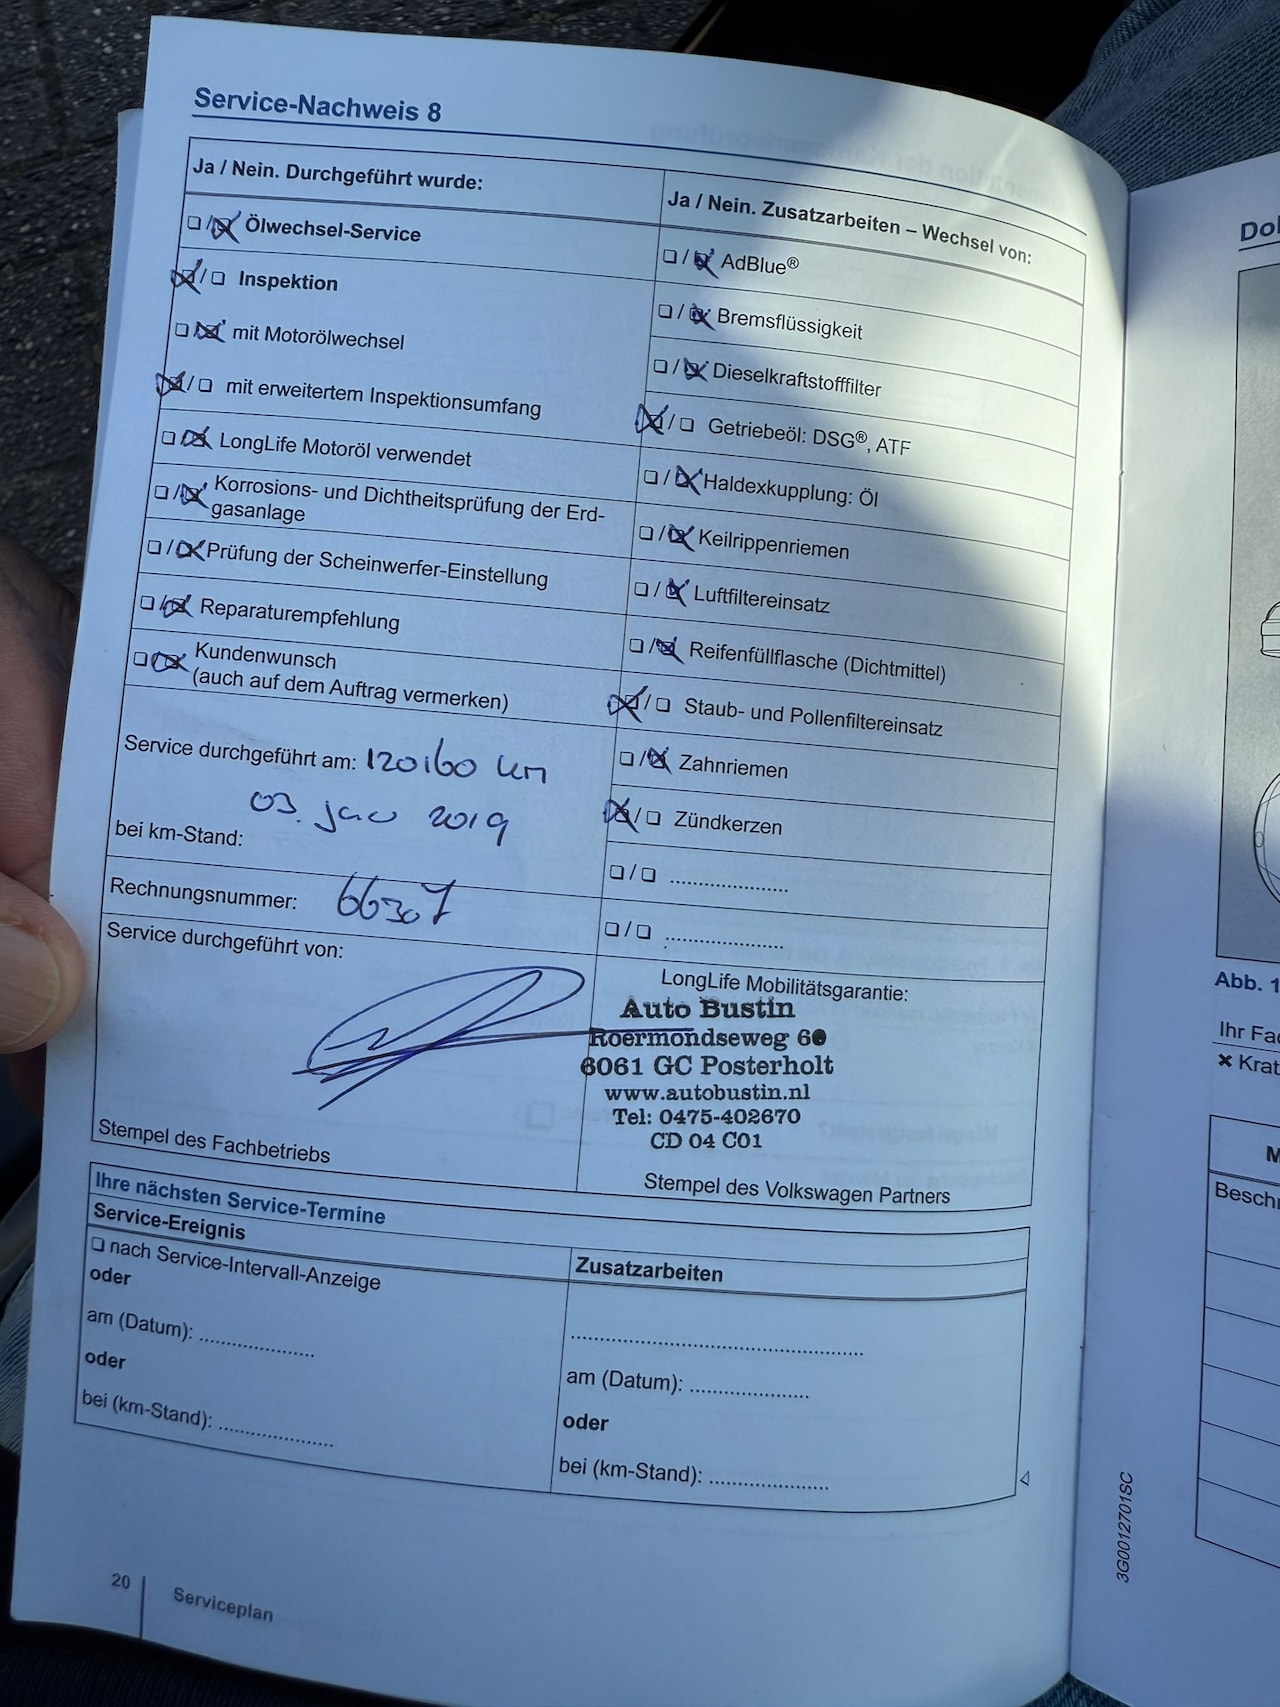 Service-Nachweis 8
Ja / Nein. Durchgeführt wurde:
❏ / ☒ Ölwechsel-Service
☒ / ❏ Inspektion
❏ / ☒ mit Motorölwechsel
☒ / ❏ mit erweitertem Inspektionsumfang
❏ / ☒ LongLife Motoröl verwendet
❏ / ☒ Korrosions- und Dichtheitsprüfung der Erd-
gasanlage
❏ / ☒ Prüfung der Scheinwerfer-Einstellung
❏ / ☒ Reparaturempfehlung
❏ / ☒ Kundenwunsch
(auch auf dem Auftrag vermerken)
Service durchgeführt am: 120160 km
03. Jan 2019
bei km-Stand:
Rechnungsnummer: 66307
Service durchgeführt von:
Stempel des Fachbetriebs
Ja / Nein. Zusatzarbeiten – Wechsel von:
❏ / ☒ AdBlue®
❏ / ☒ Bremsflüssigkeit
❏ / ☒ Dieselkraftstofffilter
☒ / ❏ Getriebeöl: DSG®, ATF
❏ / ☒ Haldexkupplung: Öl
❏ / ☒ Keilrippenriemen
❏ / ☒ Luftfiltereinsatz
❏ / ☒ Reifenfüllflasche (Dichtmittel)
☒ / ❏ Staub- und Pollenfiltereinsatz
❏ / ☒ Zahnriemen
☒ / ❏ Zündkerzen
❏ / ❏ .....................
❏ / ❏ .....................
LongLife Mobilitätsgarantie:
Auto Bustin
Roermondseweg 60
6061 GC Posterholt
www.autobustin.nl
Tel: 0475-402670
CD 04 C01
Stempel des Volkswagen Partners
Ihre nächsten Service-Termine
Service-Ereignis
❏ nach Service-Intervall-Anzeige
oder
am (Datum): .....................
oder
bei (km-Stand): .....................
Zusatzarbeiten
.....................................................
am (Datum): .....................
oder
bei (km-Stand): .....................
20
Serviceplan
3G0012701SC
Abb. 1
✖